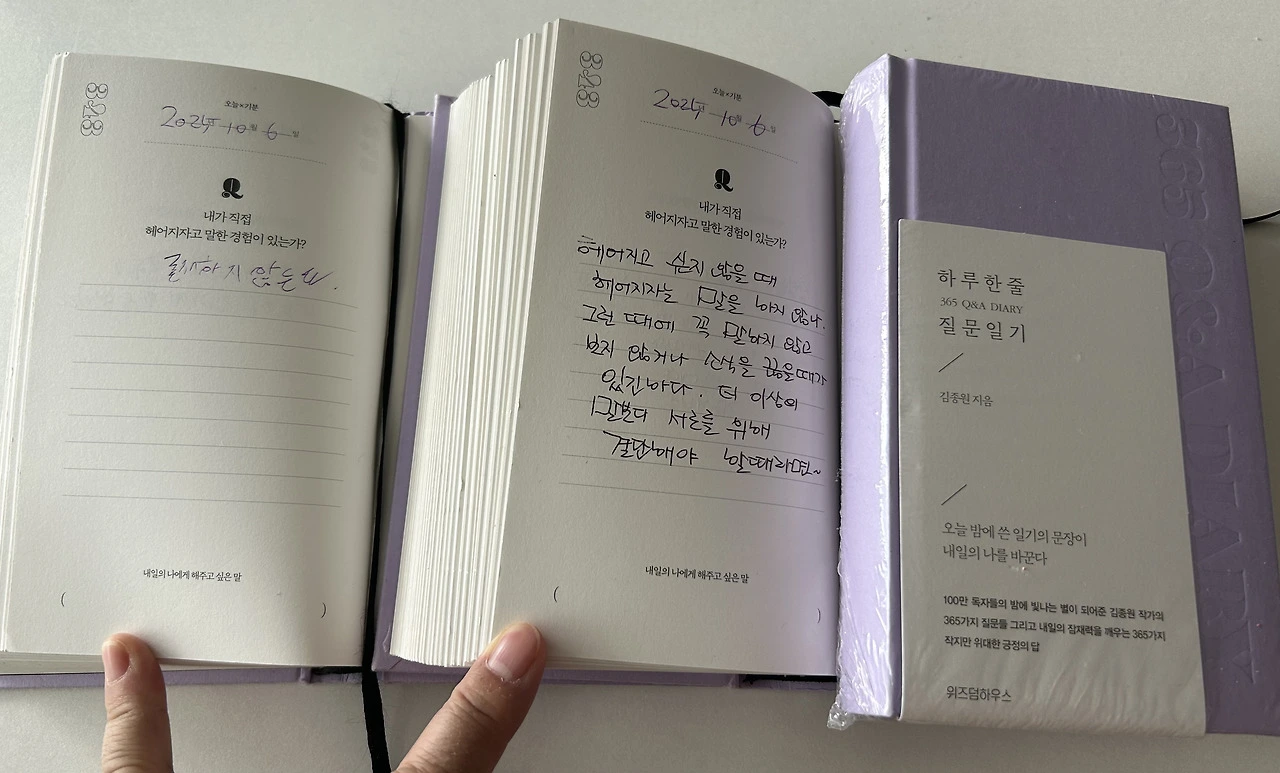 323
오늘×기분
2024년 10월 6일
Q
내가 직접
헤어지자고 말한 경험이 있는가?
않는다.
내일의 나에게 해주고 싶은 말
( )
323
오늘×기분
2024년 10월 6일
Q
내가 직접
헤어지자고 말한 경험이 있는가?
헤어지고 싶지 않을 때
헤어지자는 말을 하지 않나.
그런 때에 꼭 말하지 않고
보지 않거나 소식을 끊을때가
있긴하다. 더 이상의
서로를 위해
결단해야 할때라면~
내일의 나에게 해주고 싶은 말
( )
365 Q&A DIARY
하루 한 줄
365 Q&A DIARY
질문 일기
김종원 지음
오늘 밤에 쓴 일기의 문장이
내일의 나를 바꾼다
100만 독자들의 밤에 빛나는 별이 되어준 김종원 작가의
365가지 질문들 그리고 내일의 잠재력을 깨우는 365가지
작지만 위대한 긍정의 답
위즈덤하우스